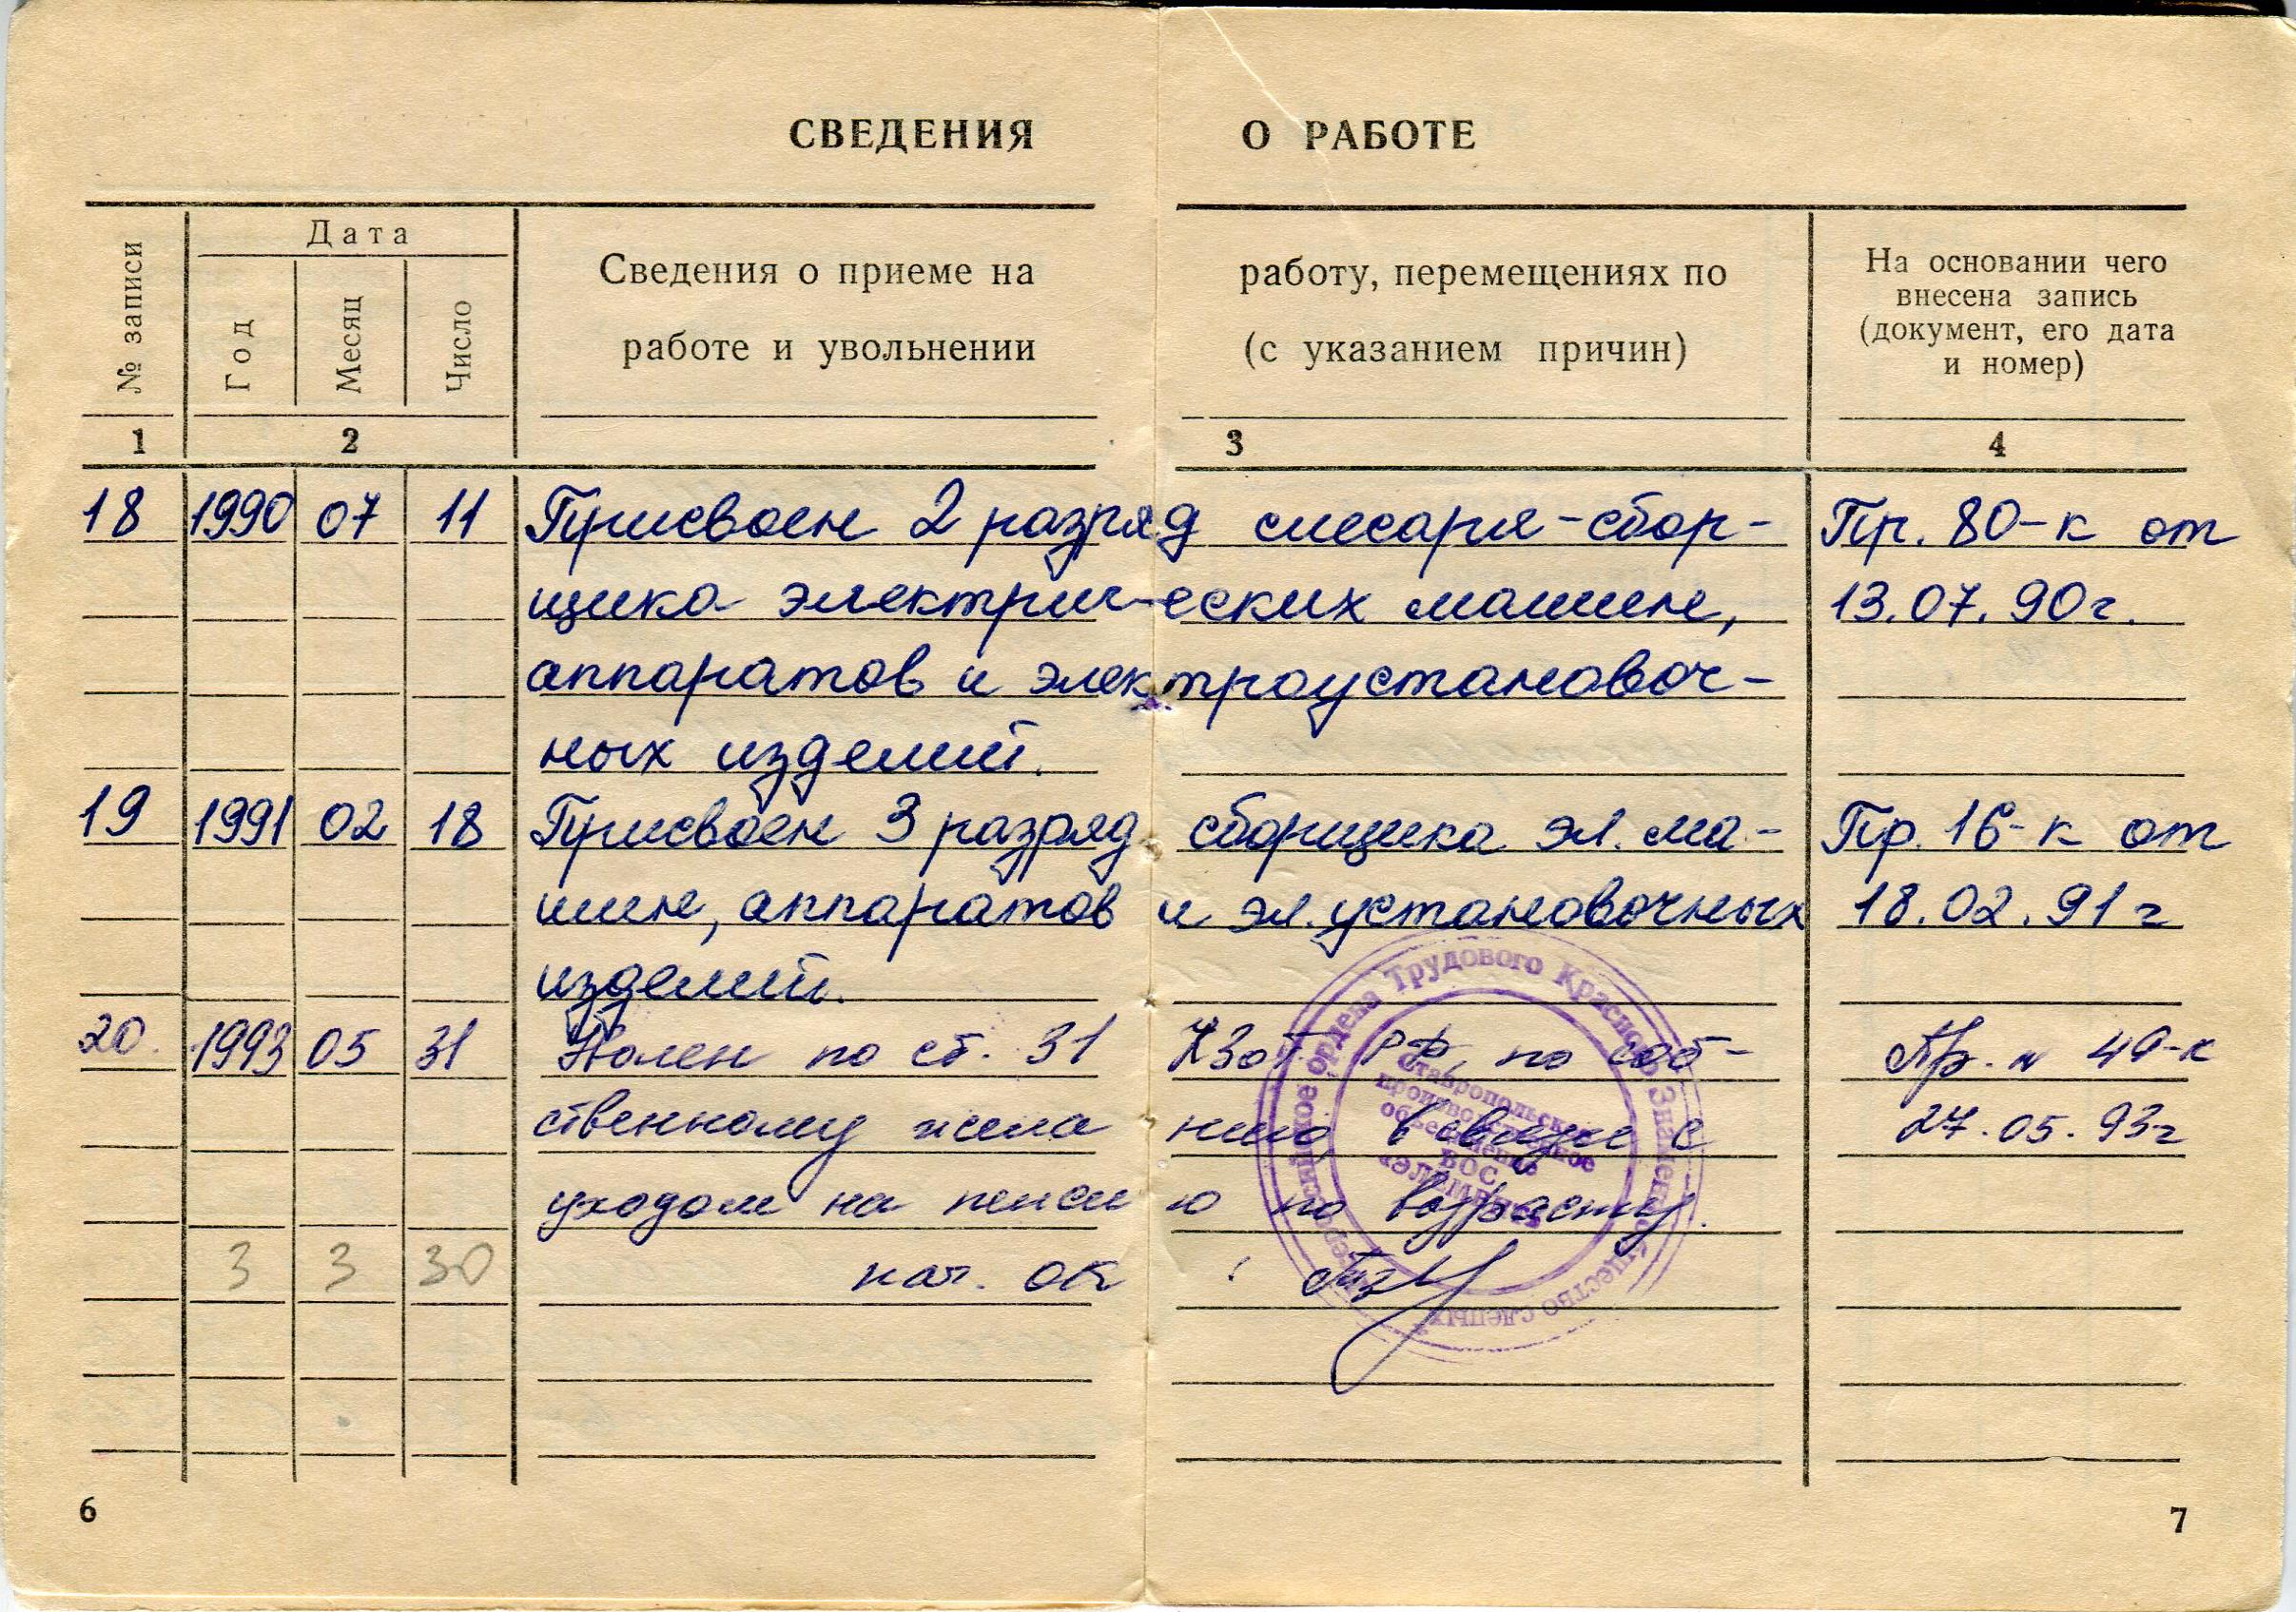 СВЕДЕНИЯ О РАБОТЕ
№ записи
Дата
Год
Месяц
Число
Сведения о приеме на работу, перемещениях по
работе и увольнении (с указанием причин)
На основании чего
внесена запись
(документ, его дата
и номер)
1 2 3 4
18 1990 07 11 Присвоен 2 разряд слесаря-сбор- Пр. 80-к от
щика электрических машин, 13.07.90г.
аппаратов и электроустановоч-
ных изделий.
19 1991 02 18 Присвоен 3 разряд сборщика эл. ма- Пр. 16-к от
шин, аппаратов и эл. установочных 18.02.91г
изделий.
20. 1993 05 31 по ст. 31 КЗоТ РФ, по соб- Пр. № 49-к
ственному желанию в связи с 27.05.93г
уходом на пенсию по возрасту.
3 3 30 нач. ОК
ордена Трудового Красного Знамени общество слепых
Ставропольское
производственное
объединение
ВОС
6 7